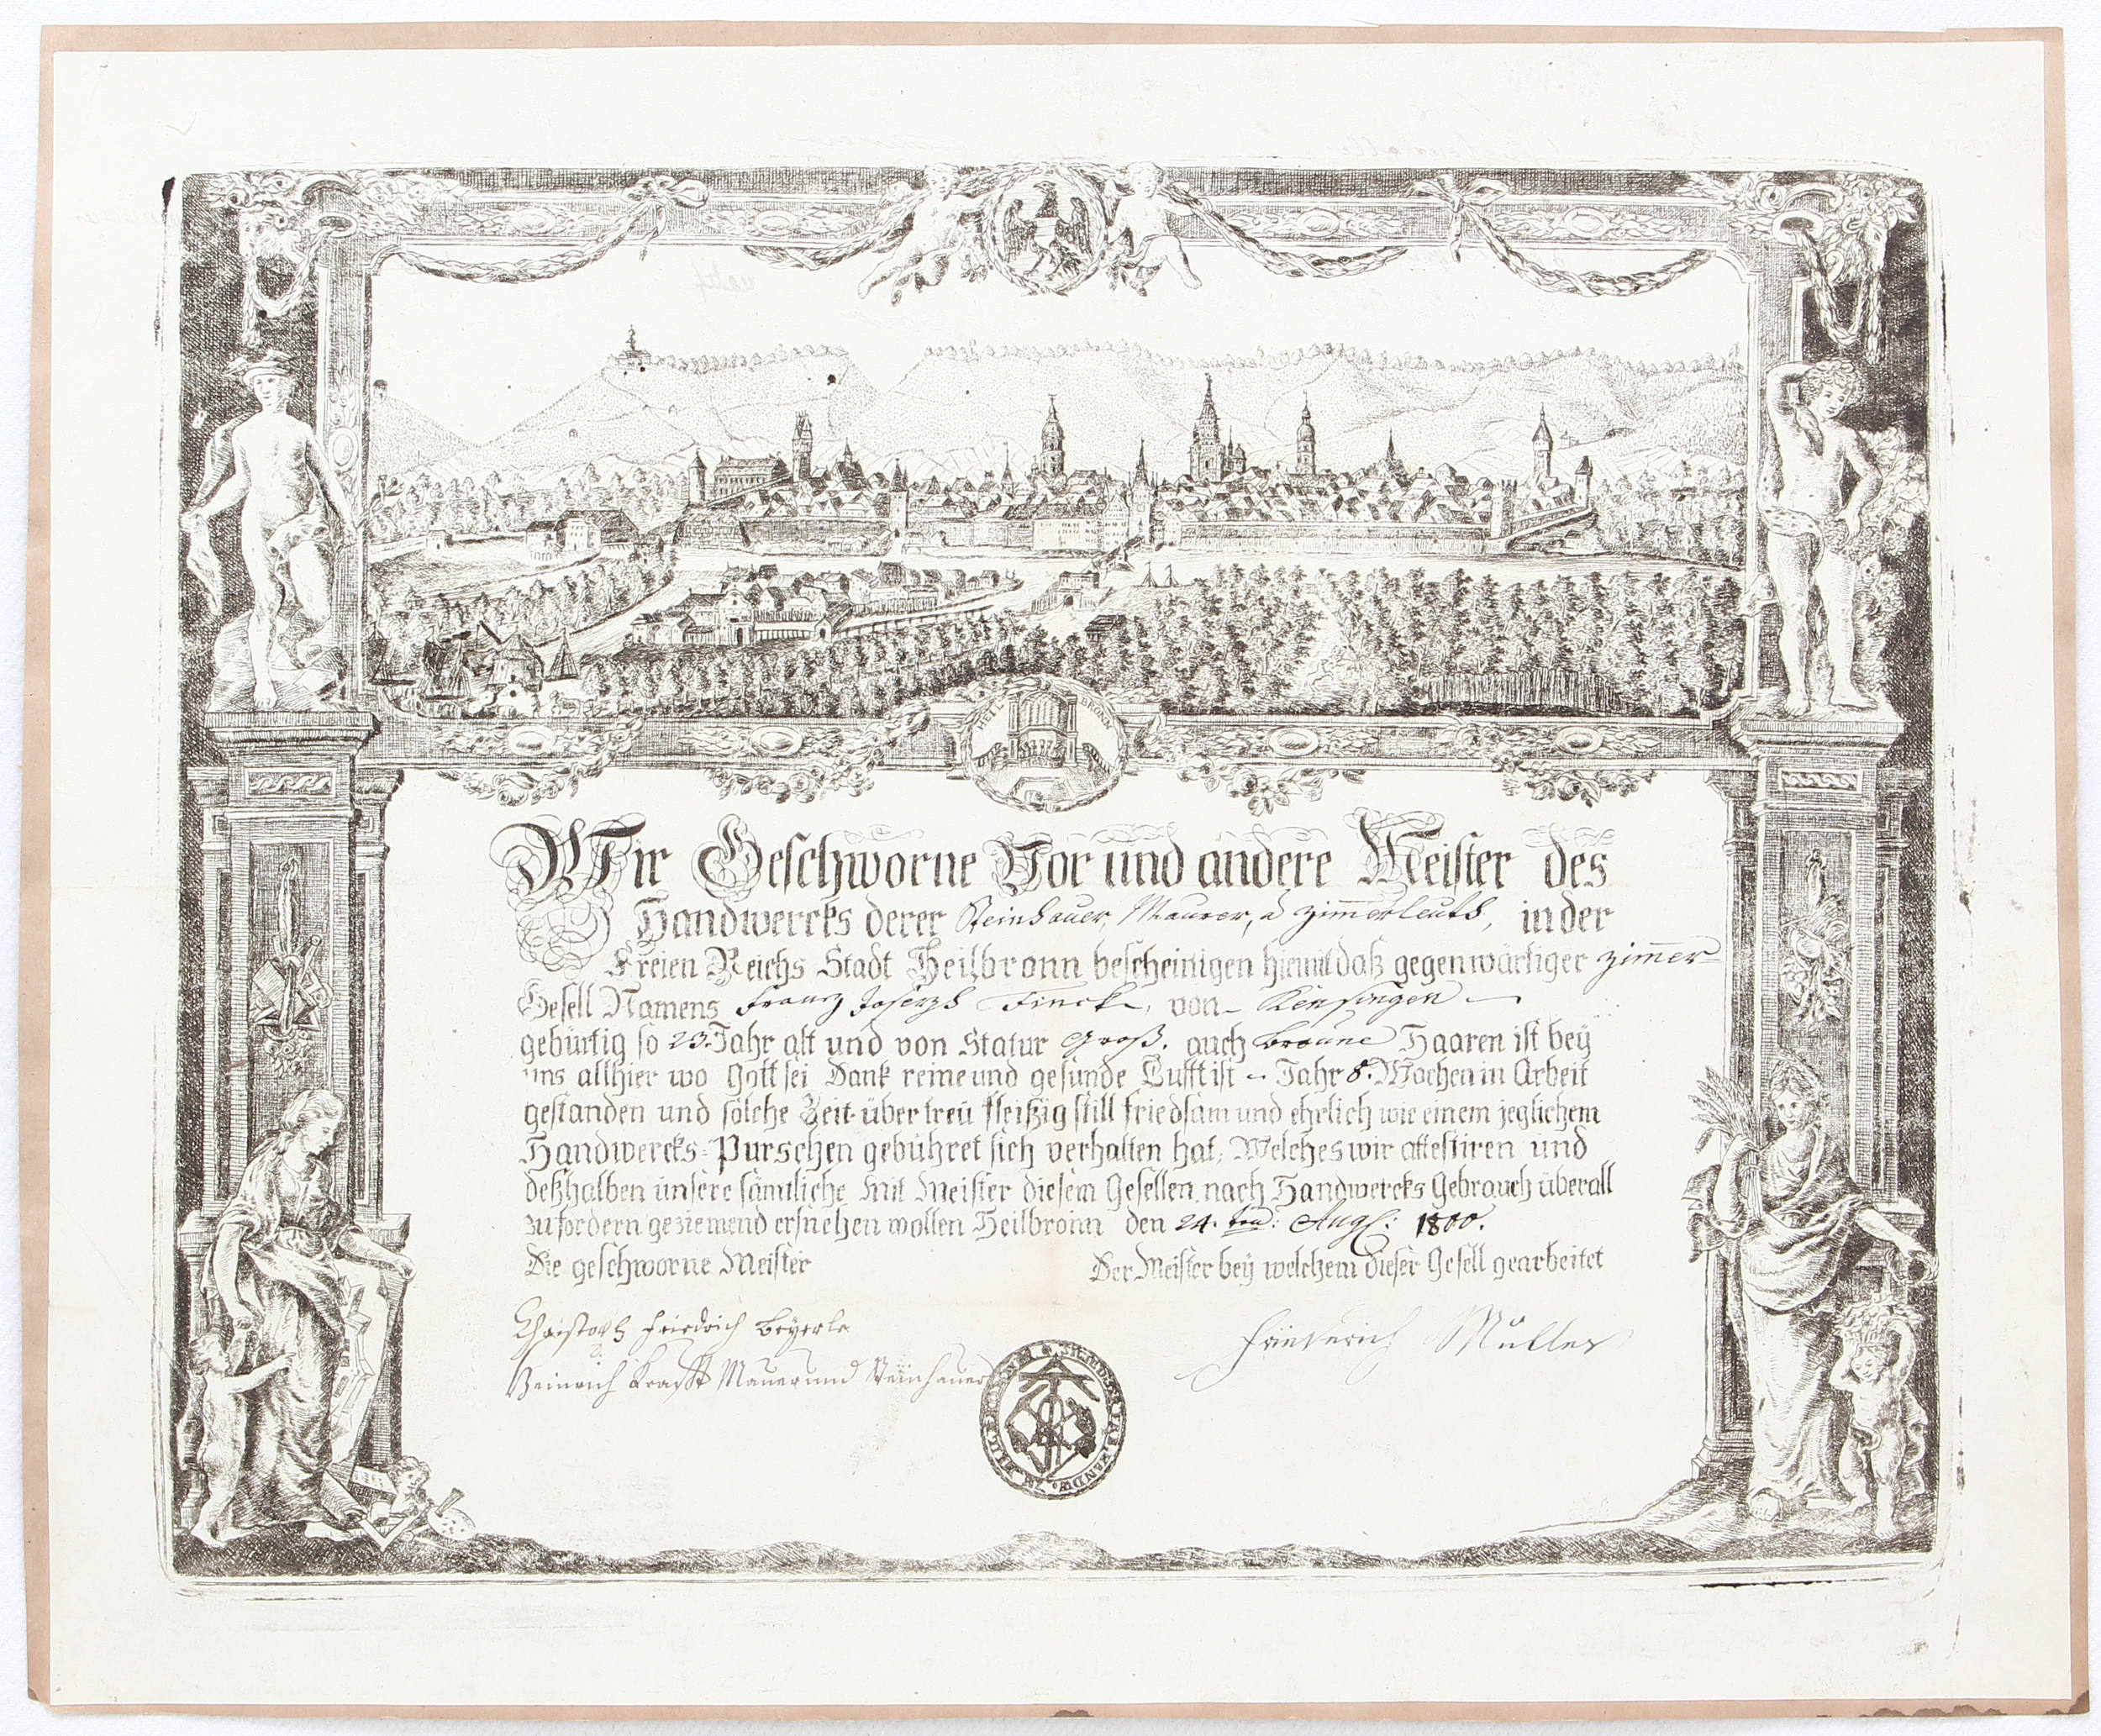 HEIL BRONN
Wir Geschworne Vor und andere Meister des
Handwercks derer Steinhauer, Maurer, u Zimmerleuth, in der
Freien Reichs Stadt Heilbronn bescheinigen hiemit daß gegenwärtiger Zimmer
Gesell Namens Franz Joseph Finck, von Kensingen
gebürtig so 23 Jahr alt und von Statur Groß. auch braune Haaren ist bey
uns allhier wo Gott sei Dank reine und gesunde Lufft ist - Jahr 8. Wochen in Arbeit
gestanden und solche Zeit über treü fleißig still friedsam und ehrlich wie einem jeglichem
Handwercks-Purschen gebühret sich verhalten hat, Welches wir attestiren und
deßhalben ünsere sämtliche Mit Meister diesem Gesellen nach Handwercks Gebrauch überall
zu fordern geziemend ersuchen wollen Heilbronn den 24. ten: Aug: 1800.
Die geschworne Meister Der Meister bey welchem dieser Gesell gearbeitet
Christoph Friedrich Beyerle Friederich Müller
Heinrich Krafft Mauer und Steinhauer